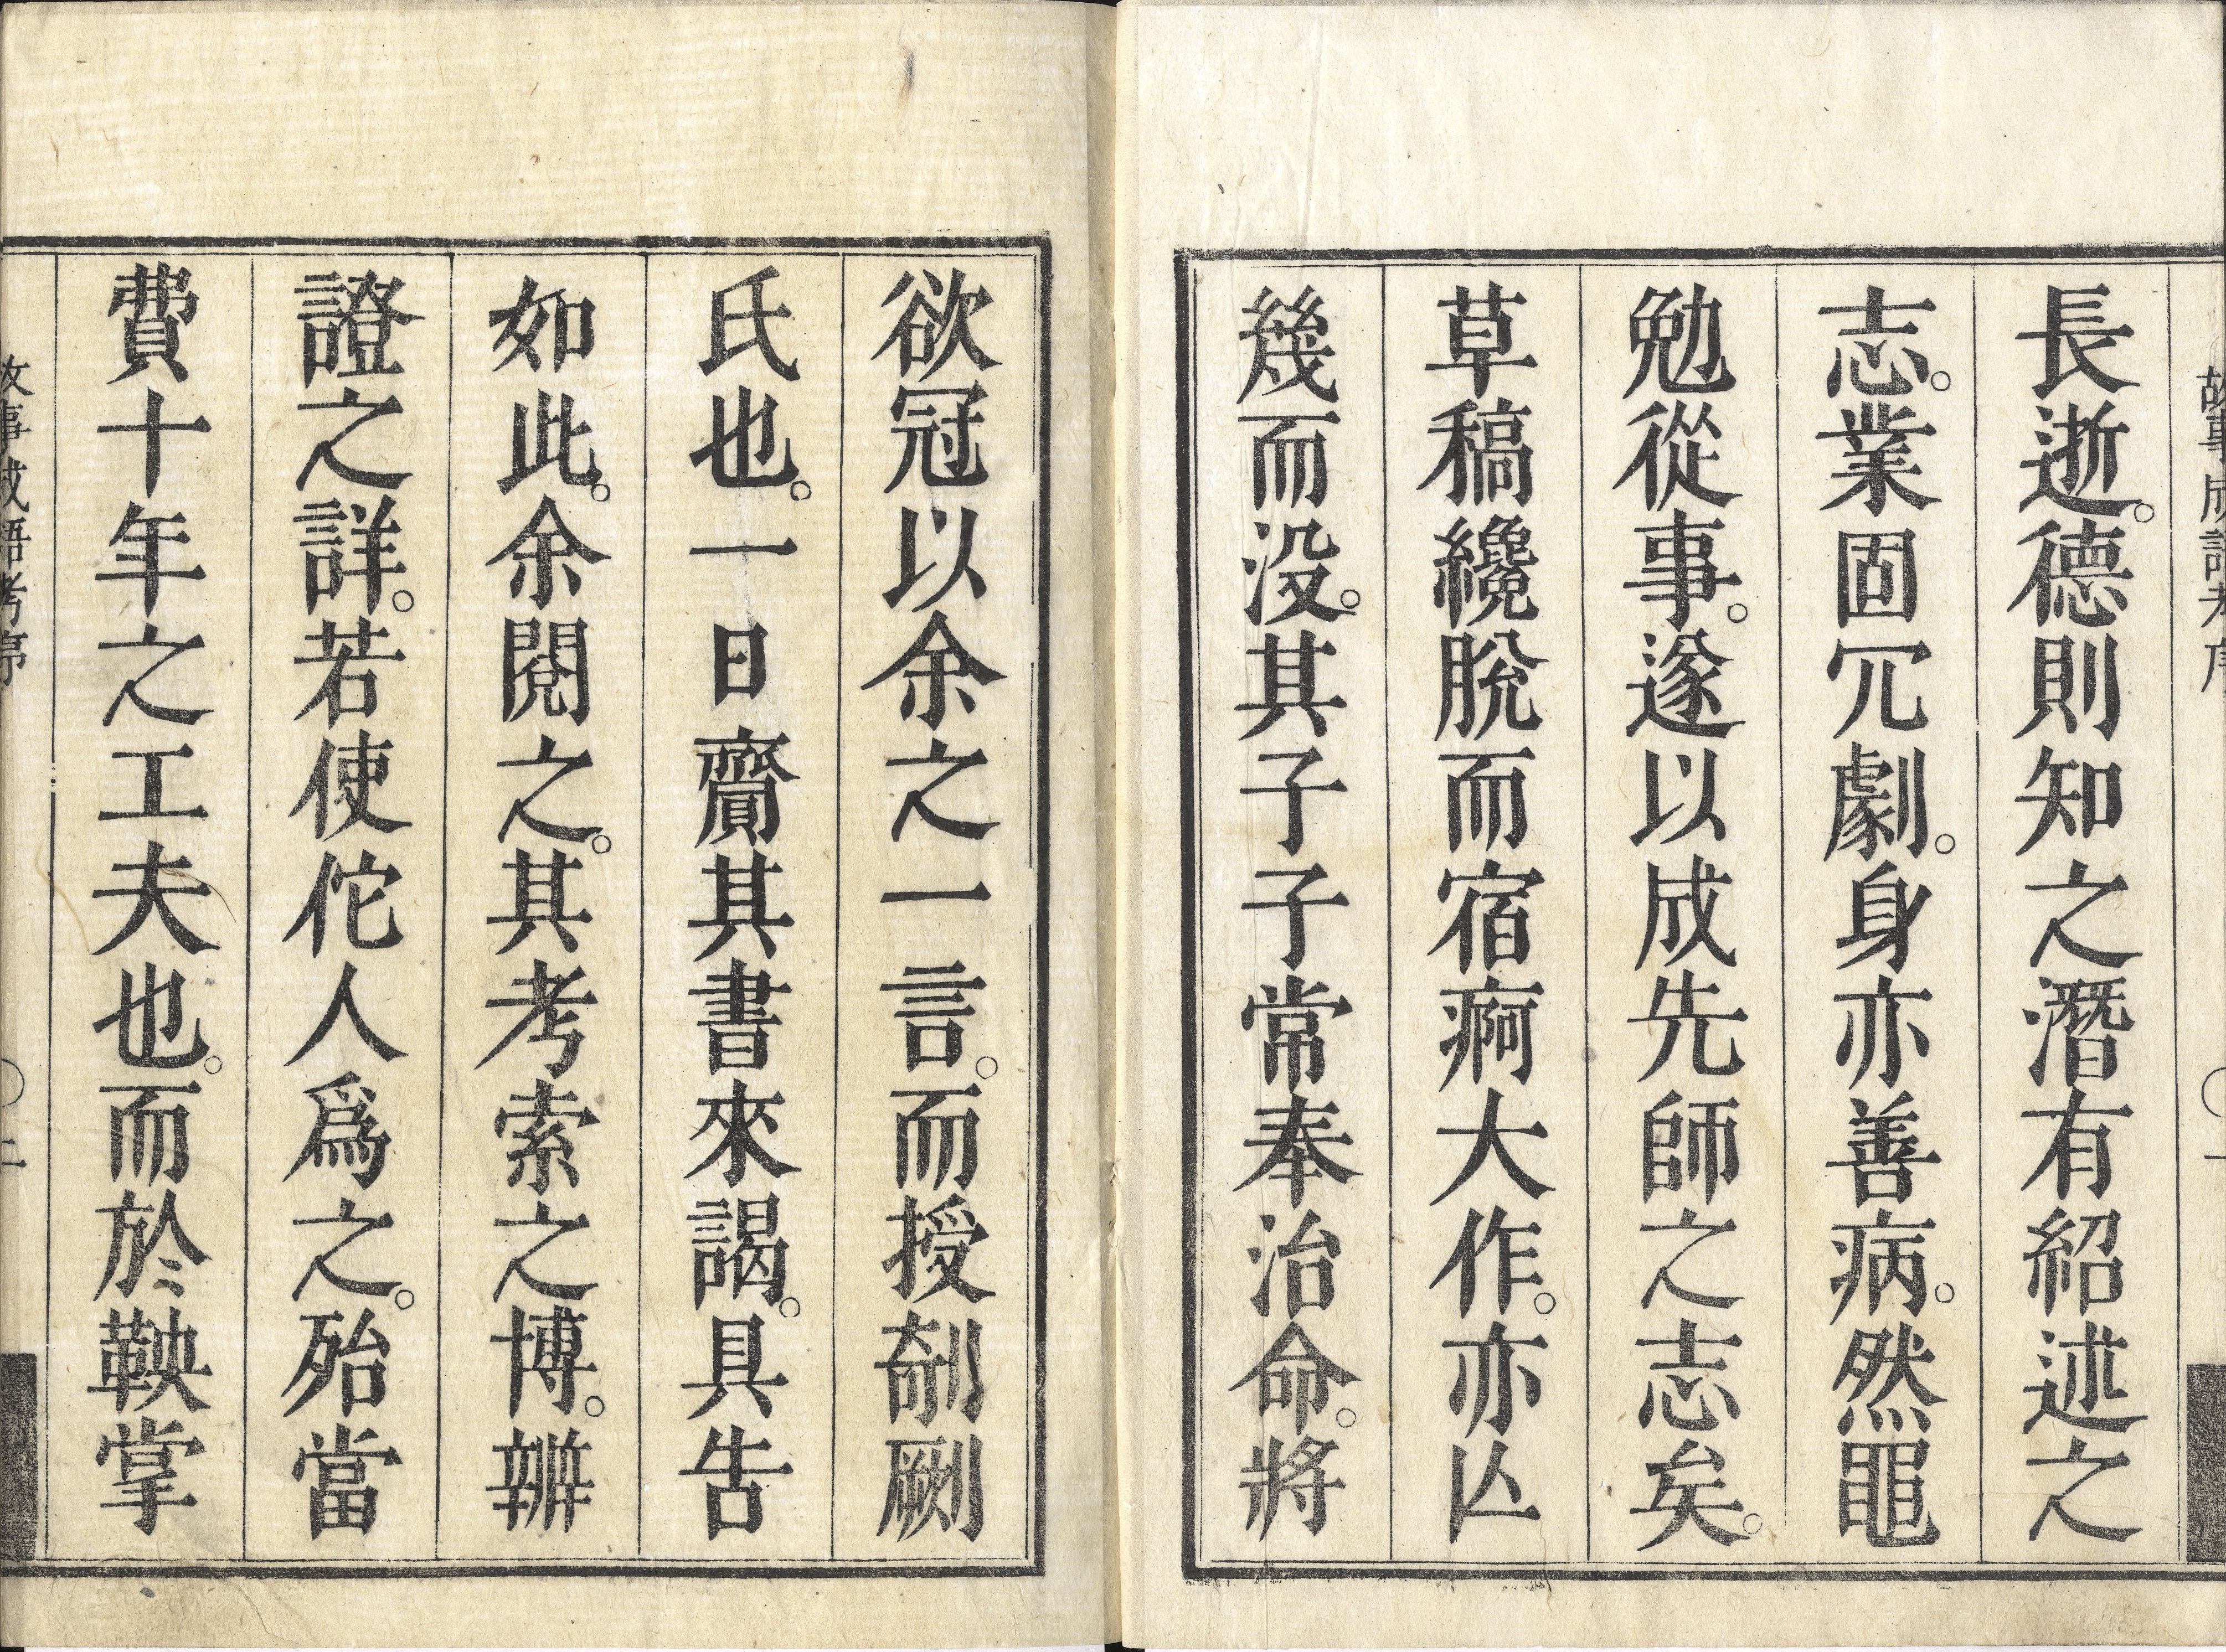 故事成語考序
一
長逝。德則知之潛有紹述之
志。業固冗劇。身亦善病。然黽
勉從事。遂以成先師之志矣。
草稿纔脫而宿痾大作。亦亾
幾而没。其子子常奉治命。將
欲冠以余之一言。而授剞劂
氏也。一日齎其書來謁。具告
如此。余閱之。其考索之博。辨
證之詳。若使佗人爲之。殆當
費十年之工夫也。而於鞅掌
故事成語考序
二